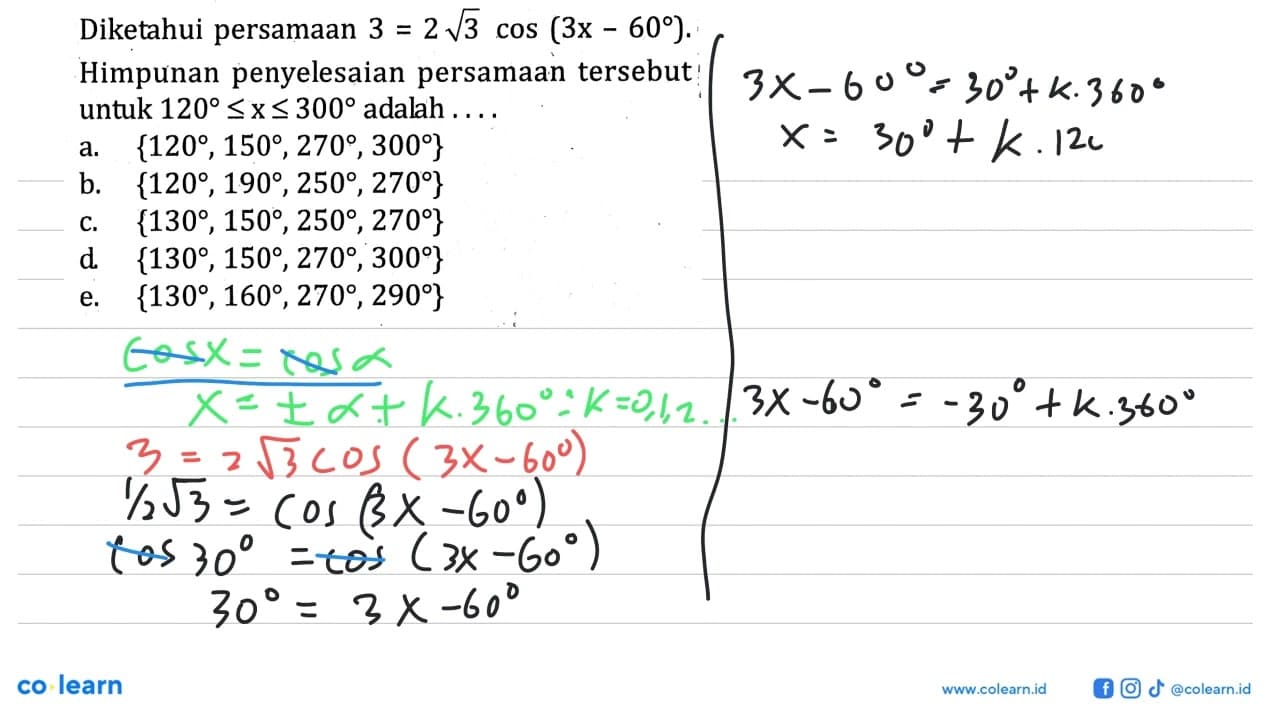 Diketahui persamaan 3 = 2√3 cos (3x – 60°).
Himpunan penyelesaian persamaan tersebut
untuk 120° ≤ x ≤ 300° adalah ....
a. {120°, 150°, 270°, 300°}
b. {120°, 190°, 250°, 270°}
c. {130°, 150°, 250°, 270°}
d. {130°, 150°, 270°, 300°}
e. {130°, 160°, 270°, 290°}
cos x = cos α
x = ± α + k.360° : k = 0,1,2...
3 = 2√3 cos (3x - 60°)
1/2√3 = cos (3x - 60°)
cos 30° = cos (3x - 60°)
30° = 3x - 60°
3x - 60° = 30° + k.360°
x = 30° + k.120
3x - 60° = -30° + k.360°
co learn
www.colearn.id
@colearn.id